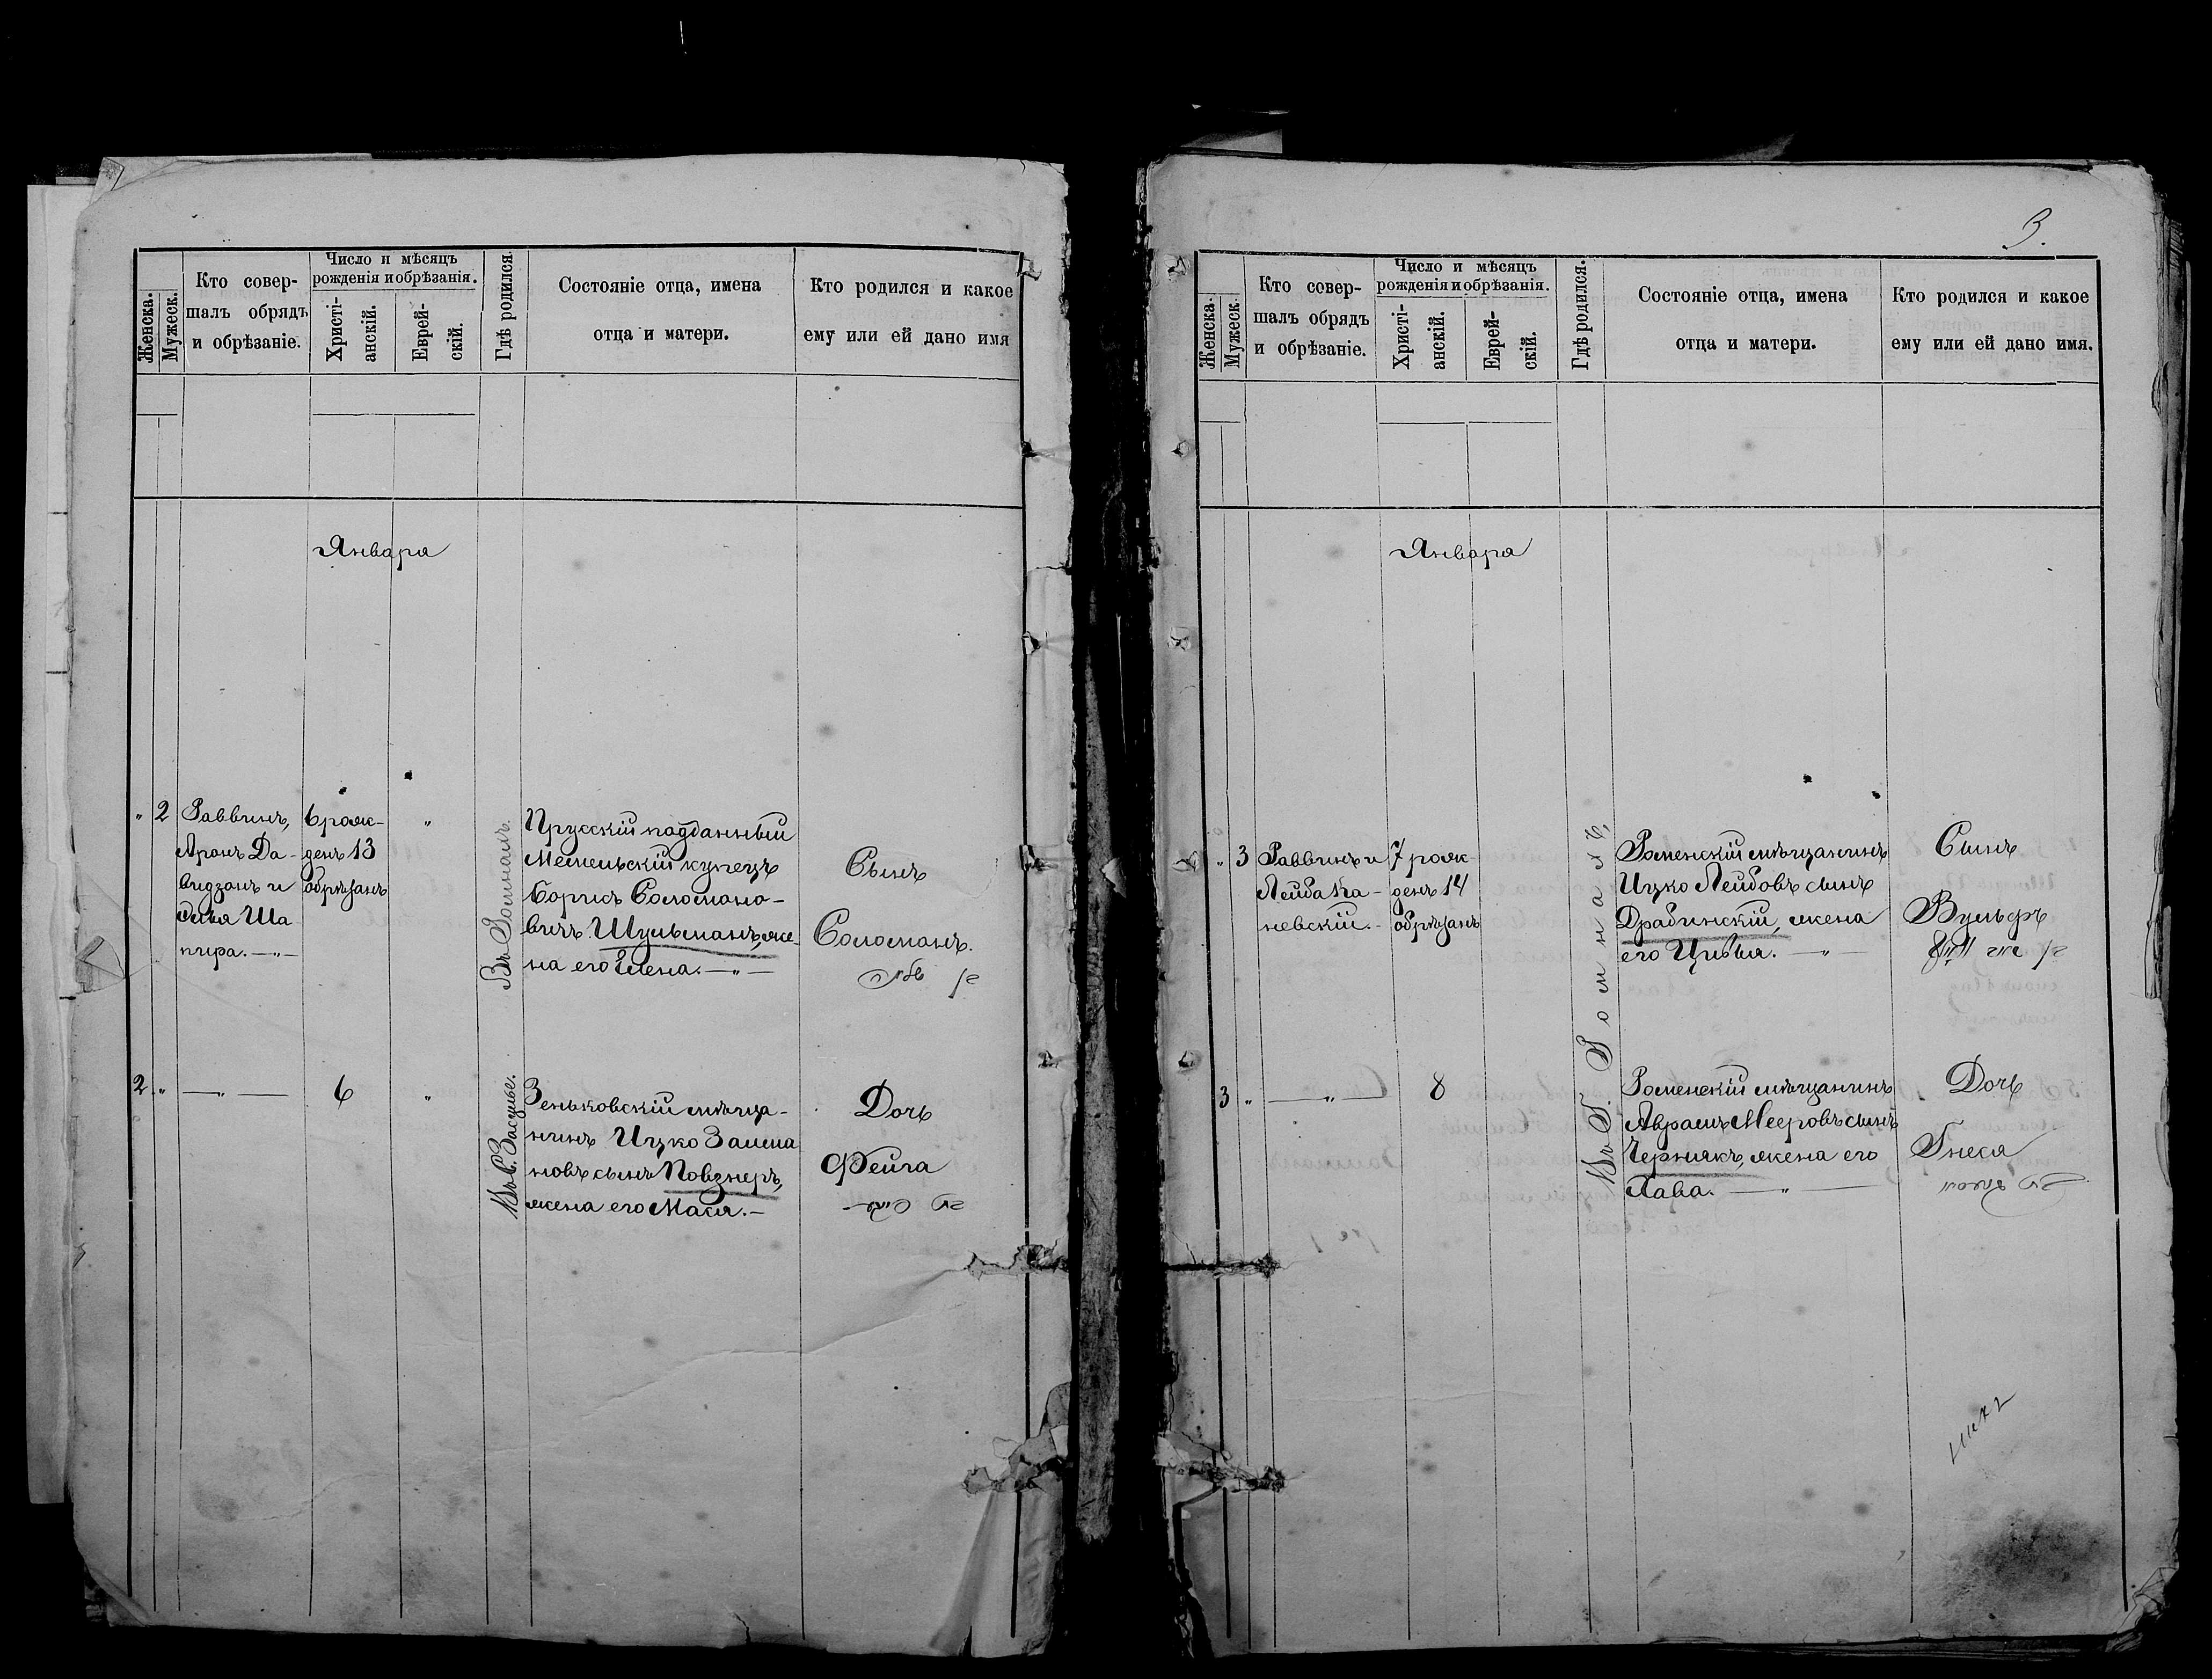 Женска.
Мужеск.
Кто совер-
шалъ обрядъ
и обрѣзаніе.
Число и мѣсяцъ
рожденія и обрѣзанія.
Христі-
анскій.
Еврей-
скій.
Гдѣ родился.
Состояніе отца, имена
отца и матери.
Кто родился и какое
ему или ей дано имя
Января
" 2
Раввинъ,
Аронъ Да-
видзонъ и
Шa-
пира. —"—
6 рож-
денъ 13
обрѣзанъ
"
Въ Ромнахъ.
Прусскій подданный
Мемельскій купецъ
Борисъ Соломоно-
вичъ Шульманъ, же-
на его Елена. —"—
Сынъ
Соломонъ.
2 "
—"—
6
"
Въ с. Засулье.
Зеньковскій мѣща-
нинъ Ицко Залма
новъ сынъ Повзнеръ,
жена его Мася. —
Дочь
Фейга
3.
Женска.
Мужеск.
Кто совер-
шалъ обрядъ
и обрѣзаніе.
Число и мѣсяцъ
рожденія и обрѣзанія.
Христі-
анскій.
Еврей-
скій.
Гдѣ родился.
Состояніе отца, имена
отца и матери.
Кто родился и какое
ему или ей дано имя.
Января
" 3
Раввинъ и
Лейба Ка-
невскій. -
7 рож-
денъ 14
обрѣзанъ
Въ Г. Ромнахъ,
Роменскій мѣщанинъ
Ицко Лейбовъ сынъ
Драбинскій, жена
его Цивья. —"—
Сынъ
Вульфъ
3 "
—"—
8
Роменскій мѣщанинъ
Абрамъ Мееровъ сынъ
Чернякъ, жена его
Хава. —"—
Дочь
Гнеся